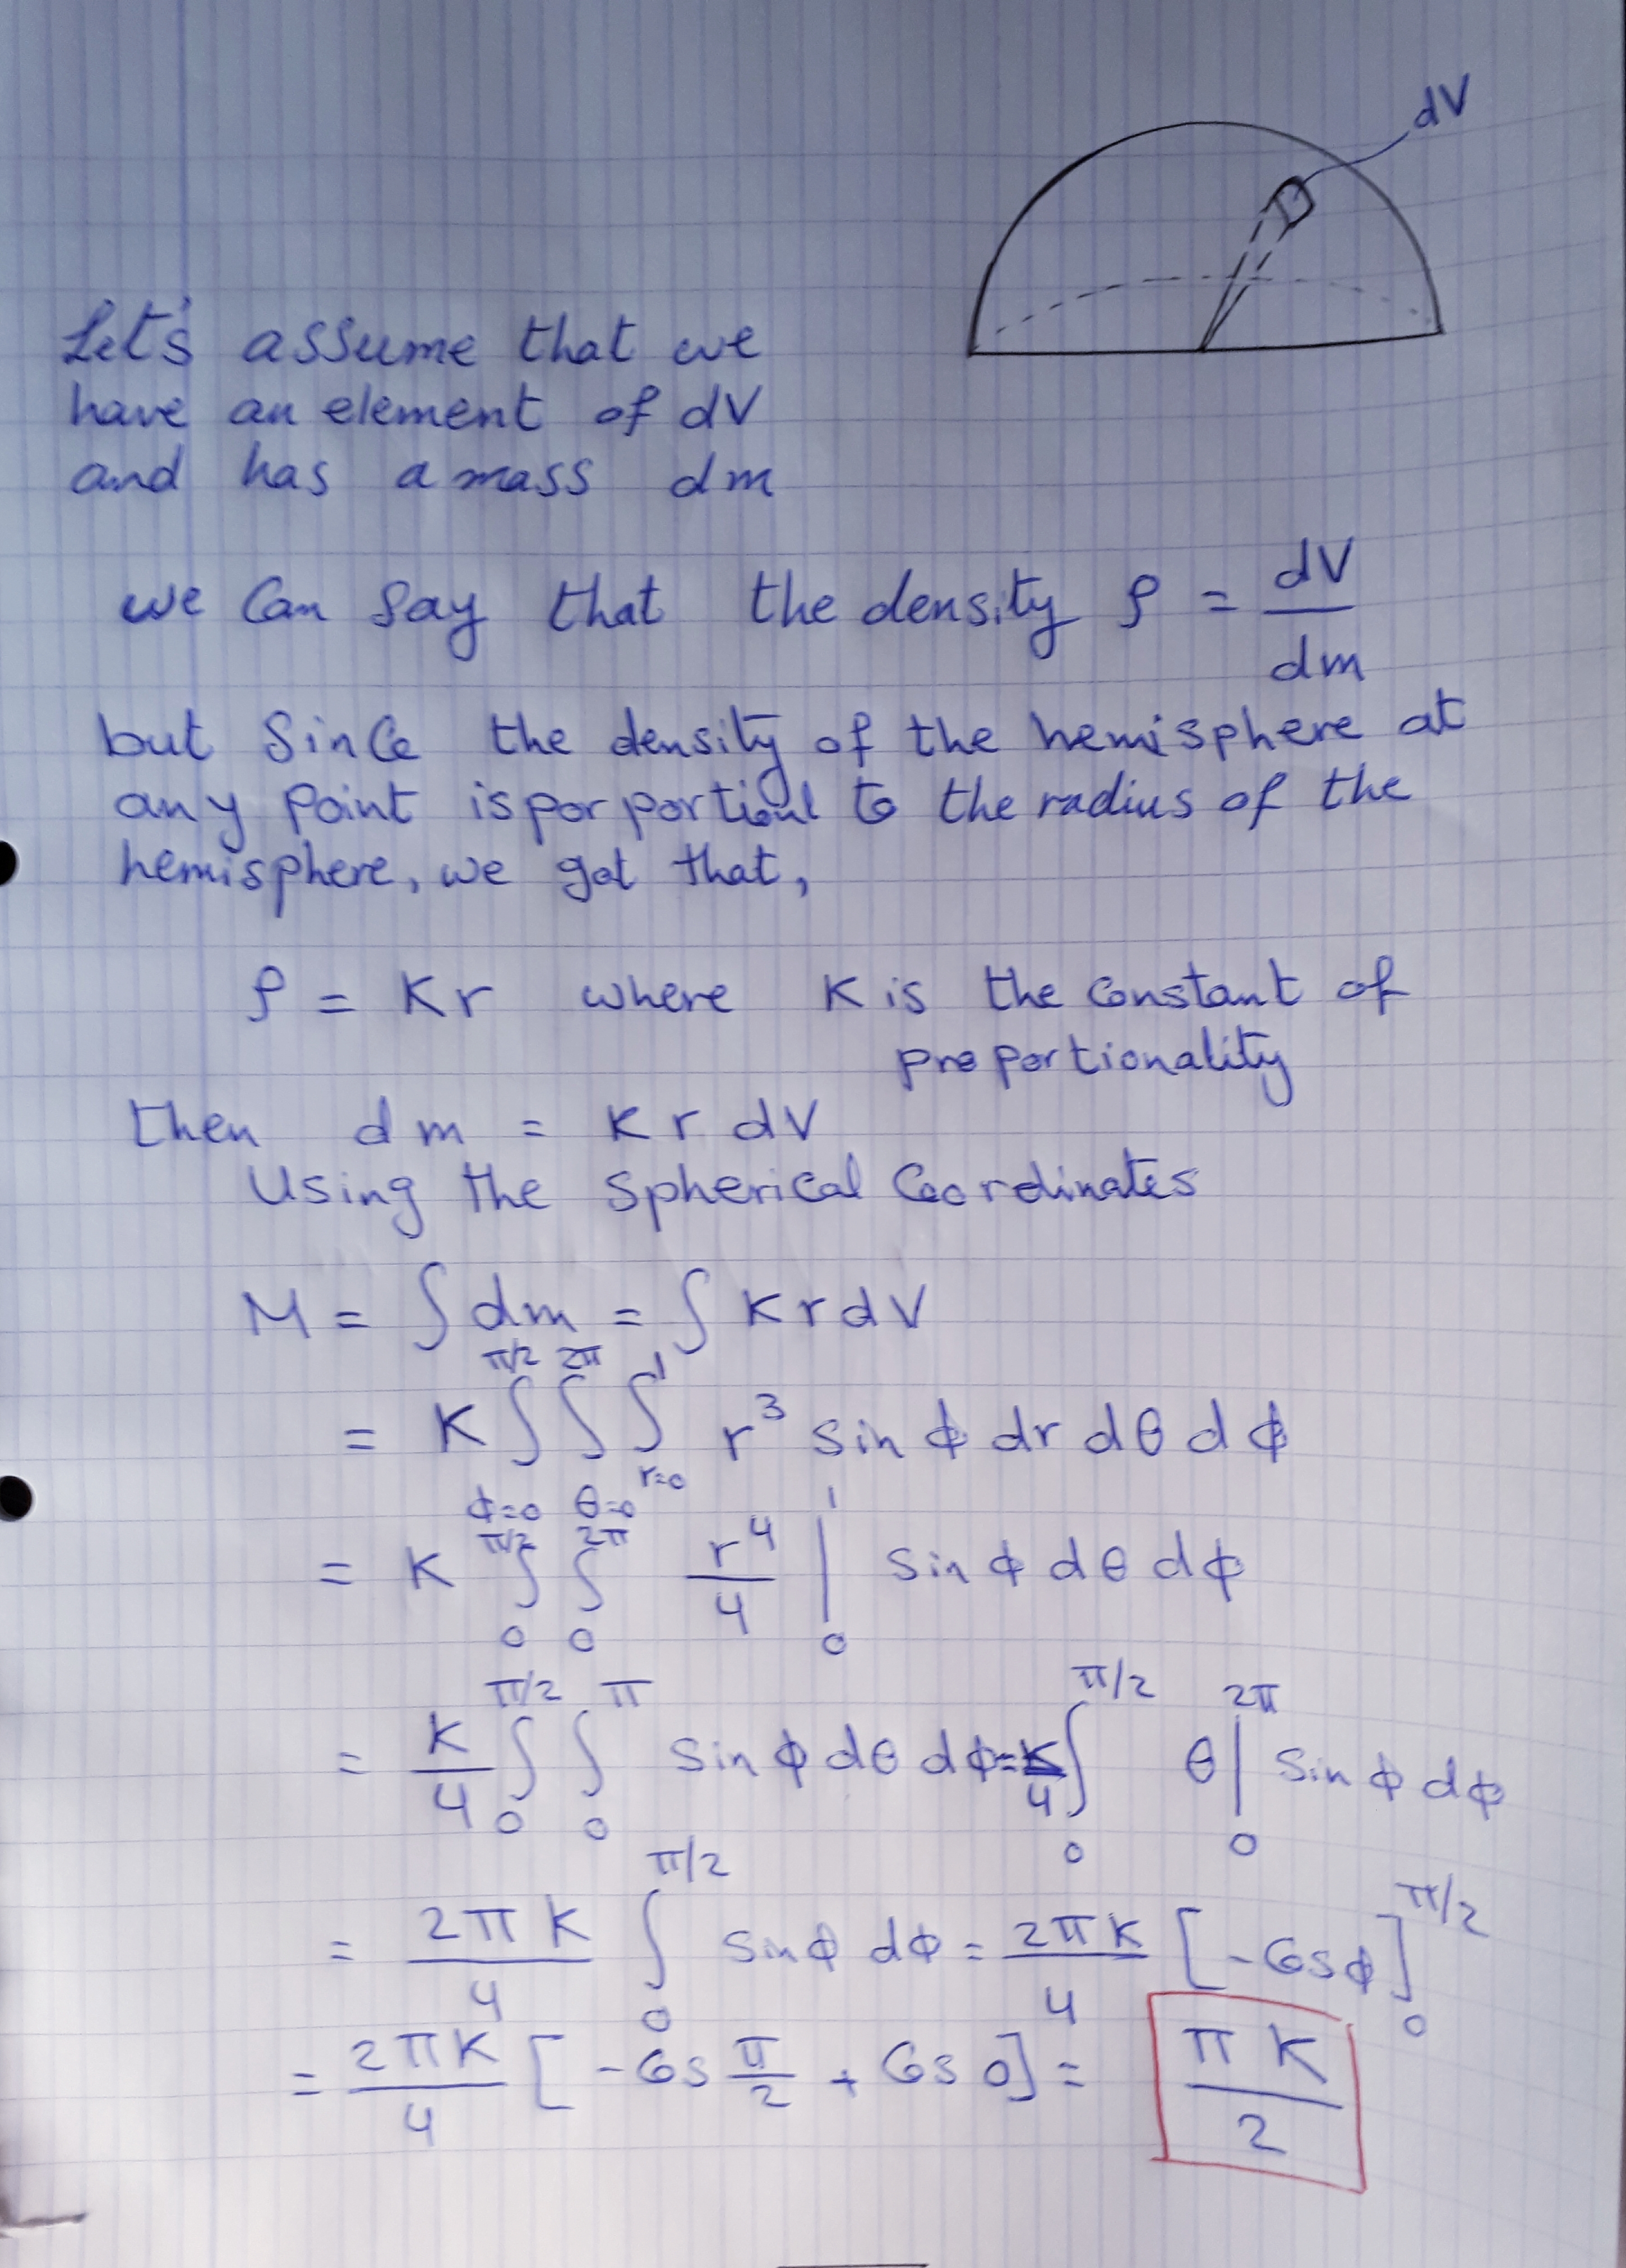 dV
Let's assume that we
have an element of dV
and has a mass dm
we can say that the density ρ = dV/dm
but since the density of the hemisphere at
any point is porportional to the radius of the
hemisphere, we got that,
ρ = Kr where K is the constant of
proportionality
then dm = K r dV
Using the spherical Coordinates
M = ∫ dm = ∫ K r dV
= K ∫_{φ=0}^{π/2} ∫_{θ=0}^{2π} ∫_{r=0}^{1} r³ sin φ dr dθ dφ
= K ∫_0^{π/2} ∫_0^{2π} r⁴/4 |_0^1 sin φ dθ dφ
= K/4 ∫_0^{π/2} ∫_0^{π} sin φ dθ dφ = K/4 ∫_0^{π/2} θ |_0^{2π} sin φ dφ
= 2πK/4 ∫_0^{π/2} sin φ dφ = 2πK/4 [-Cos φ]_0^{π/2}
= 2πK/4 [-Cos π/2 + Cos 0] = πK/2